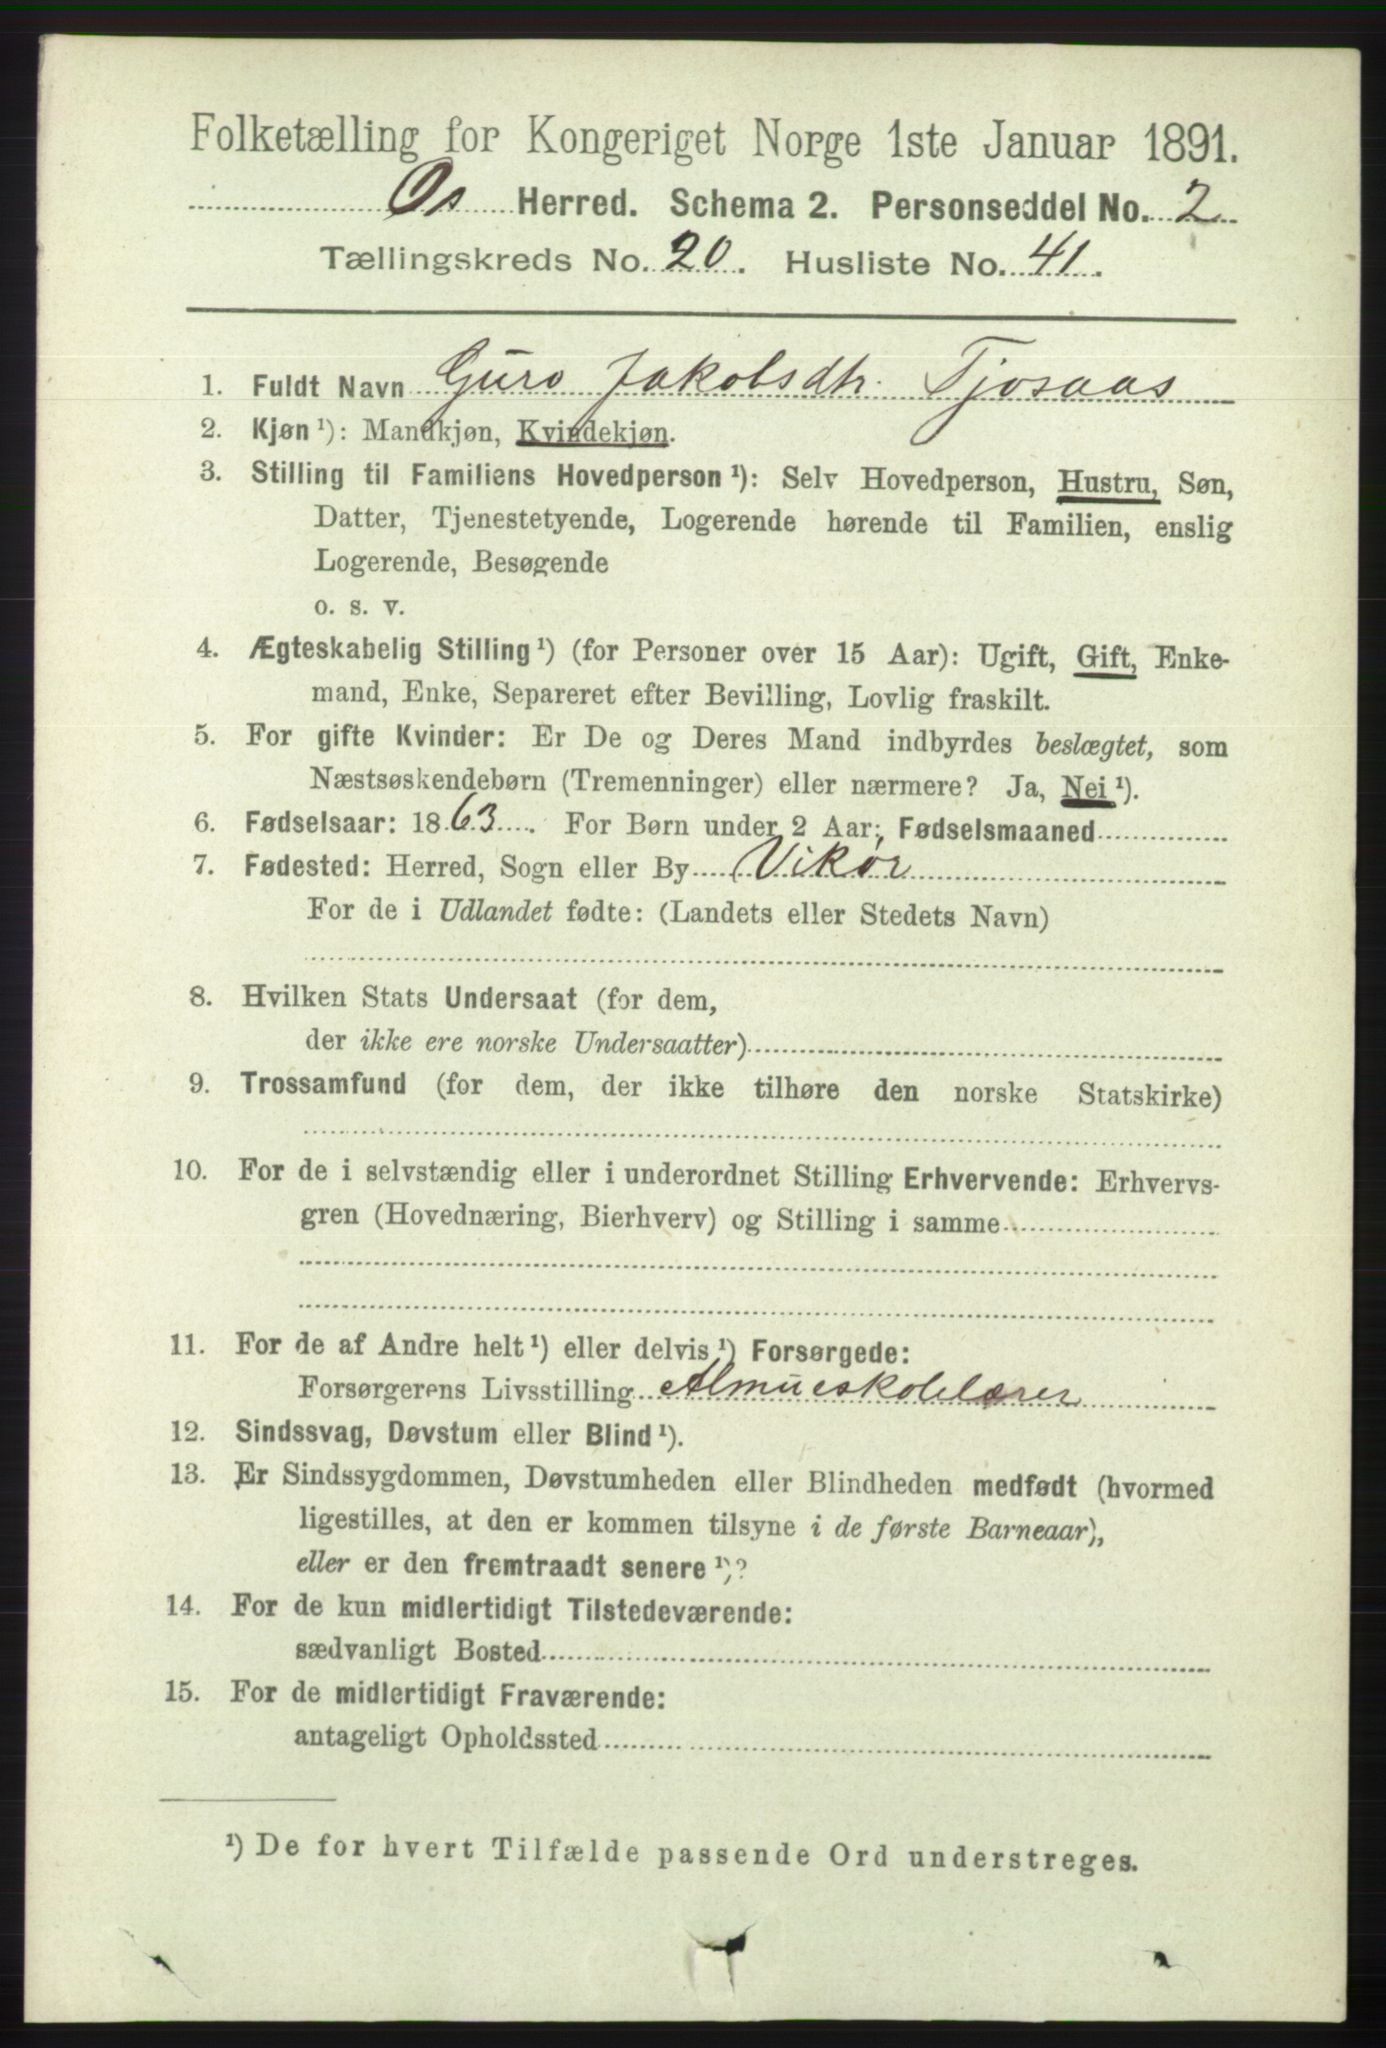 Folketælling for Kongeriget Norge 1ste Januar 1891.
Os Herred. Schema 2. Personseddel No. 2
Tællingskreds No. 20. Husliste No. 41.
1. Fuldt Navn Guro Jakobsdtr. Tjosaas
2. Kjøn ¹): Mandkjøn, Kvindekjøn.
3. Stilling til Familiens Hovedperson ¹): Selv Hovedperson, Hustru, Søn,
Datter, Tjenestetyende, Logerende hørende til Familien, enslig
Logerende, Besøgende
o. s. v.
4. Ægteskabelig Stilling ¹) (for Personer over 15 Aar): Ugift, Gift, Enke-
mand, Enke, Separeret efter Bevilling, Lovlig fraskilt.
5. For gifte Kvinder: Er De og Deres Mand indbyrdes beslægtet, som
Næstsøskendebørn (Tremenninger) eller nærmere? Ja, Nei ¹).
6. Fødselsaar: 1863. For Børn under 2 Aar; Fødselsmaaned
7. Fødested: Herred, Sogn eller By Vikør
For de i Udlandet fødte: (Landets eller Stedets Navn)
8. Hvilken Stats Undersaat (for dem,
der ikke ere norske Undersaatter)
9. Trossamfund (for dem, der ikke tilhøre den norske Statskirke)
10. For de i selvstændig eller i underordnet Stilling Erhvervende: Erhvervs-
gren (Hovednæring, Bierhverv) og Stilling i samme
11. For de af Andre helt ¹) eller delvis ¹) Forsørgede:
Forsørgerens Livsstilling Almueskolelærer
12. Sindssvag, Døvstum eller Blind ¹).
13. Er Sindssygdommen, Døvstumheden eller Blindheden medfødt (hvormed
ligestilles, at den er kommen tilsyne i de første Barneaar),
eller er den fremtraadt senere ¹)?
14. For de kun midlertidigt Tilstedeværende:
sædvanligt Bosted
15. For de midlertidigt Fraværende:
antageligt Opholdssted
¹) De for hvert Tilfælde passende Ord understreges.